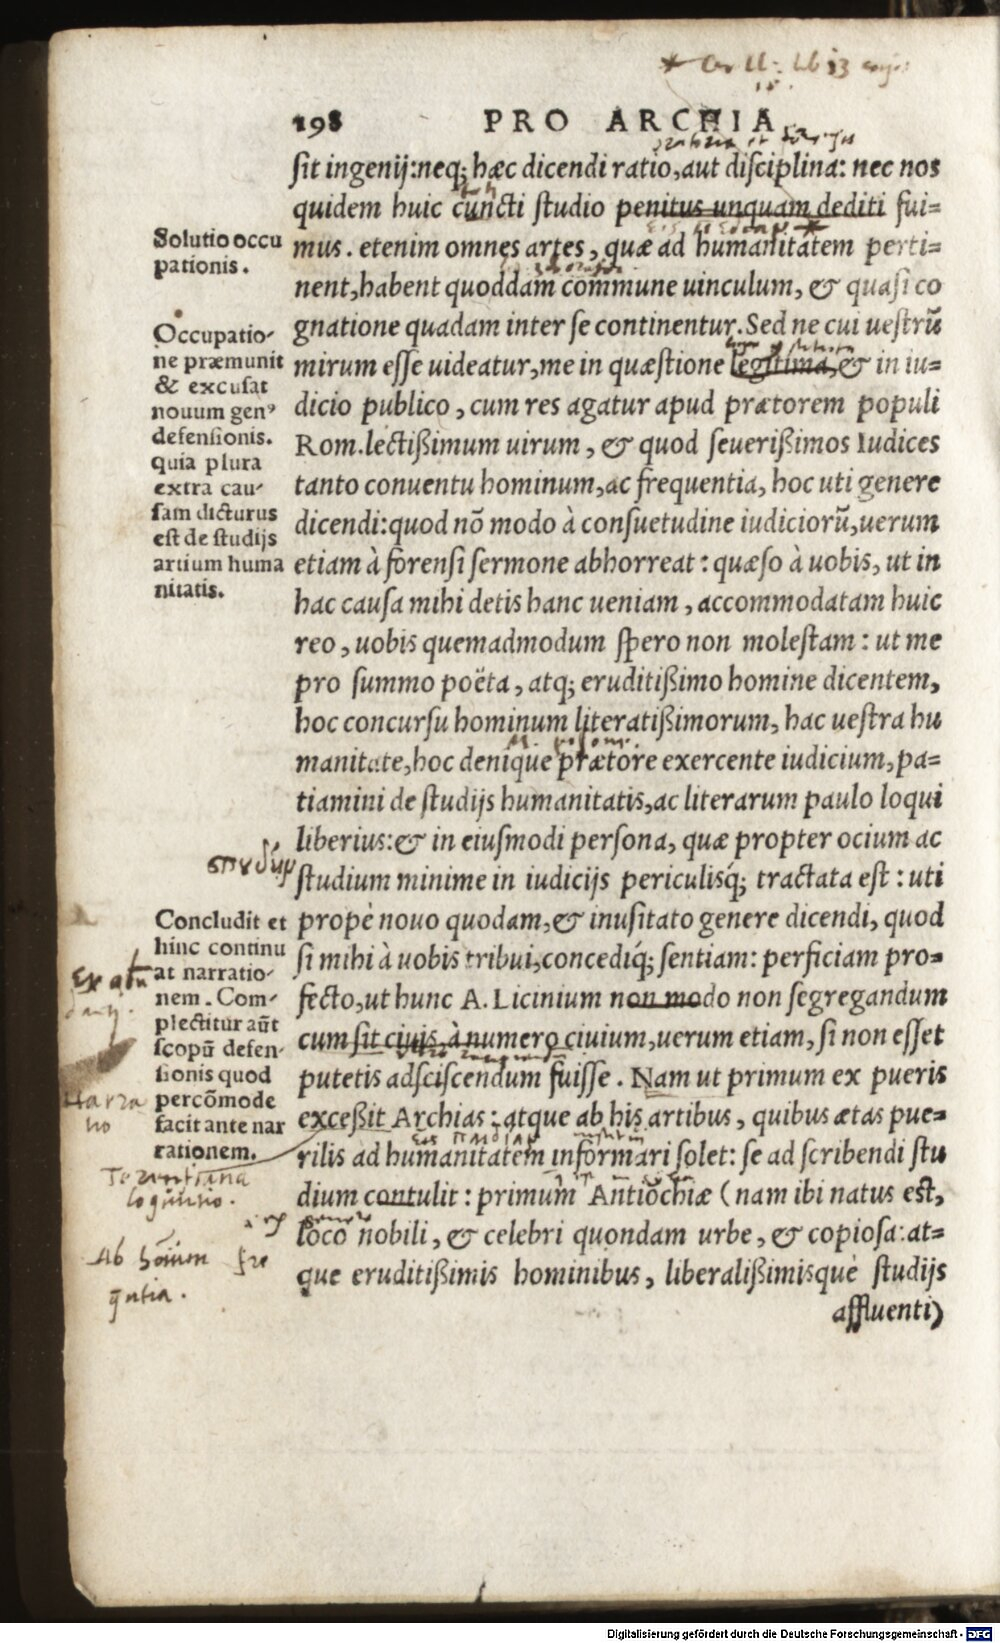 198 PRO ARCHIA
sit ingenij:neq; hæc dicendi ratio,aut disciplina: nec nos
quidem huic cuncti studio penitus unquam dediti fui=
mus. etenim omnes artes, quæ ad humanitatem perti=
nent,habent quoddam commune uinculum, & quasi co
gnatione quadam inter se continentur.Sed ne cui uestrũ
mirum esse uideatur,me in quæstione legitima,& in iu=
dicio publico, cum res agatur apud prætorem populi
Rom.lectißimum uirum, & quod seuerißimos Iudices
tanto conuentu hominum,ac frequentia, hoc uti genere
dicendi:quod nõ modo à consuetudine iudiciorũ,uerum
etiam à forensi sermone abhorreat: quæso à uobis, ut in
hac causa mihi detis hanc ueniam, accommodatam huic
reo, uobis quemadmodum spero non molestam: ut me
pro summo poëta, atq; eruditißimo homine dicentem,
hoc concursu hominum literatißimorum, hac uestra hu
manitate,hoc denique prætore exercente iudicium,pa=
tiamini de studijs humanitatis,ac literarum paulo loqui
liberius:& in eiusmodi persona, quæ propter ocium ac
studium minime in iudicijs periculisq́; tractata est: uti
propè nouo quodam,& inusitato genere dicendi, quod
si mihi à uobis tribui,concediq́; sentiam: perficiam pro=
fecto,ut hunc A. Licinium non modo non segregandum
cum sit ciuis,à numero ciuium,uerum etiam, si non esset
putetis adsciscendum fuisse. Nam ut primum ex pueris
exceßit Archias: atque ab his artibus, quibus ætas pue=
rilis ad humanitatem informari solet: se ad scribendi stu
dium contulit: primum Antiochiæ (nam ibi natus est,
loco nobili, & celebri quondam urbe, & copiosa: at=
que eruditißimis hominibus, liberalißimisque studijs
affluenti)
Solutio occu
pationis.
Occupatio-
ne præmunit
& excusat
nouum gen⁹
defensionis.
quia plura
extra cau-
sam dicturus
est de studijs
artium huma
nitatis.
Concludit et
hinc continu
at narratio-
nem. Com-
plectitur aũt
scopũ defen-
sionis quod
percõmode
facit ante nar
rationem.
Narra
tio
Ab